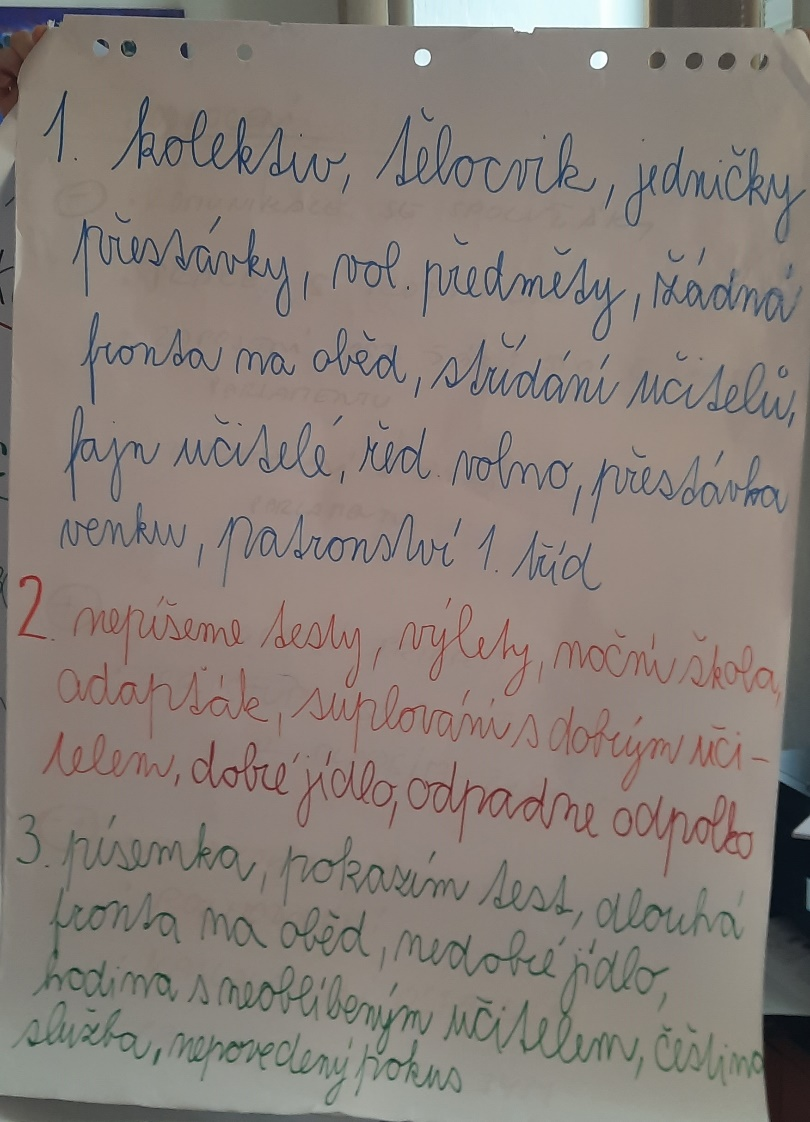 1. kolektiv, tělocvik, jedničky
přestávky, vol. předměty, žádná
fronta na oběd, střídání učitelů,
fajn učitelé, řed. volno, přestávka
venku, patronství 1. tříd
2. nepíšeme testy, výlety, noční škola,
adapťák, suplování s dobrým uči-
telem, dobré jídlo, odpadne odpolko
3. písemka, pokazím test, dlouhá
fronta na oběd, nedobré jídlo,
hodina s neoblíbeným učitelem, čeština
služba, nepovedený pokus